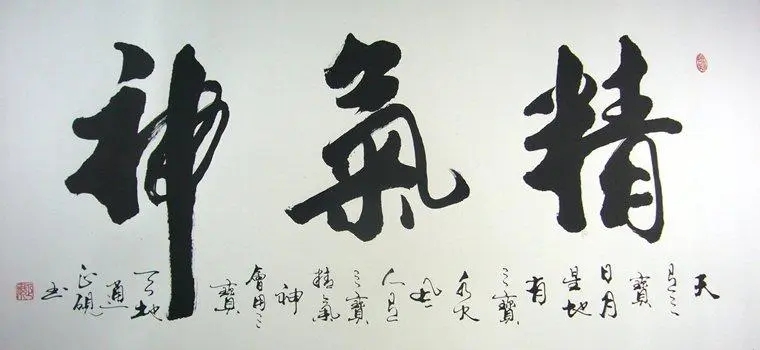 精氣神
天
有三
寶
日月
星地
有
三寶
水火
風
人有
三寶
精氣
神
會用三
寶
天地
通
正硯
书